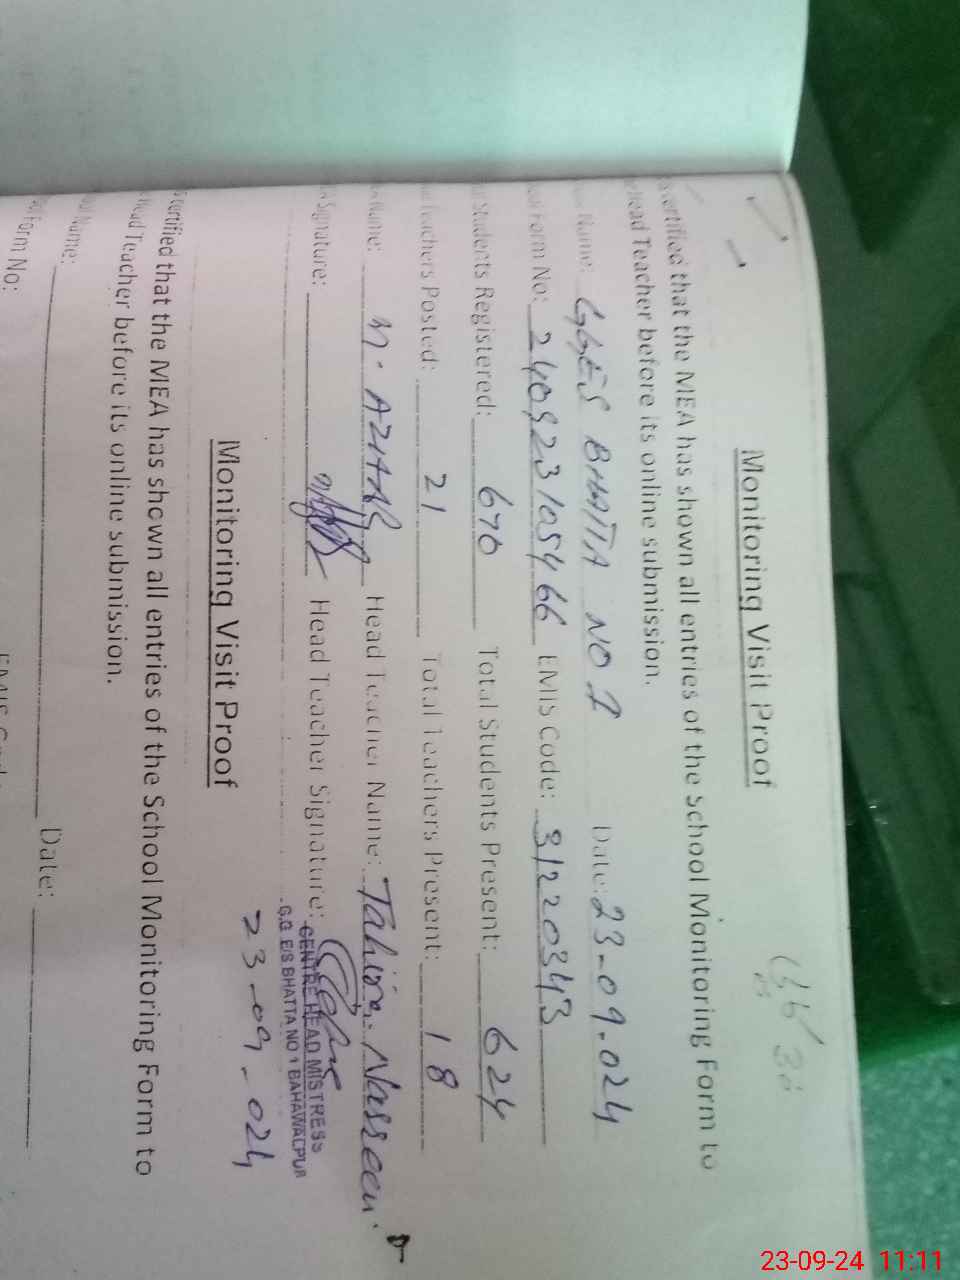 Monitoring Visit Proof
certified that the MEA has shown all entries of the School Monitoring Form to
Head Teacher before its online submission.
Name: GGES BHATTA NO 1 Date: 23-09-024
Form No: 240923105466 EMIS Code: 31220343
Students Registered: 670 Total Students Present: 624
Teachers Posted: 21 Total Teachers Present: 18
Name: M. AZHAR Head Teacher Name: Tahira Nasreen
Signature: Head Teacher Signature:
CENTRE HEAD MISTRESS
G.G E/S BHATTA NO 1 BAHAWALPUR
23-09-024
Monitoring Visit Proof
certified that the MEA has shown all entries of the School Monitoring Form to
Head Teacher before its online submission.
Name: Date:
Form No:
23-09-24 11:11